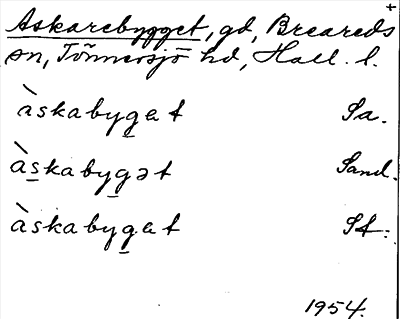 Askarebygget, gd, Breareds +
sn, Tönnersjö hd, Hall. l.
àskabyg̲et Sa.
às̲kabyg̲ət Sand.
àskabyg̲et St.
1954.